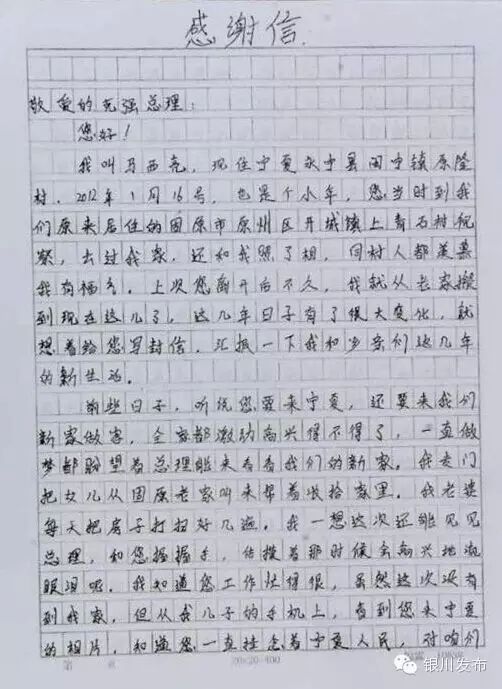 感谢信
敬爱的克强总理：
您好！
我叫马西克，现住宁夏永宁县闽宁镇原隆
村。2012年1月16号，也是个小年，您当时到我
们原来居住的固原市原州区开城镇上青石村视
察，去过我家，还和我照了相，同村人都羡慕
我有福气。上次您离开后不久，我就从老家搬
到现在这儿了，这几年日子有了很大变化，就
想着给您写封信，汇报一下我和乡亲们这几年
的新生活。
前些日子，听说您要来宁夏，还要来我们
新家做客，全家都激动高兴得不得了，一直做
梦都盼望着总理能来看看我们的新家。我专门
把女儿从固原老家叫来帮着收拾家里。我老婆
每天把房子打扫好几遍。我一想这次还能见见
总理，和您握握手，估摸着那时候会高兴地流
眼泪呢。我知道您工作忙得很，虽然这次没有
到我家，但从我儿子的手机上，看到您来宁夏
的相片，知道您一直挂念着宁夏人民，对咱们
第 页
20×20=400
银川发布